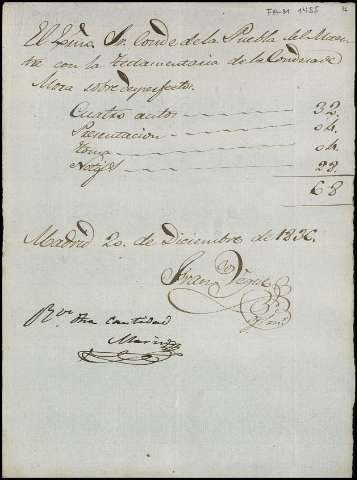 El Exmo. Sr. Conde de la Puebla del Maes-
tre con la Testamentaria de la Condesa de
Mora sobre desperfectos.
Cuatro autos 32.
Presentacion 04.
Toma 04.
Notifs 28.
68
Madrid 20. de Diciembre de 1836.
Fran
Rvi. dha cantidad